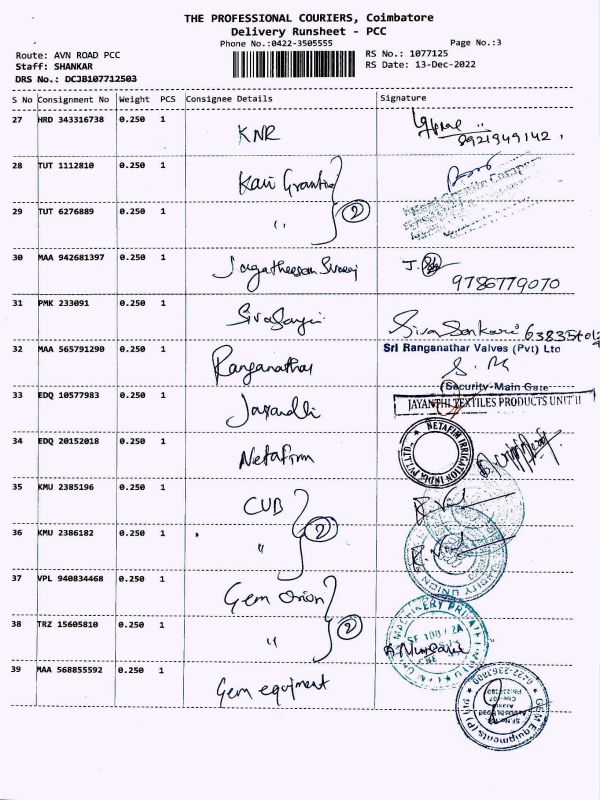 THE PROFESSIONAL COURIERS, Coimbatore
Delivery Runsheet - PCC
Phone No.:0422-3505555
Page No.:3
Route: AVN ROAD PCC
RS No.: 1077125
Staff: SHANKAR
RS Date: 13-Dec-2022
DRS No.: DCJB107712503
S No Consignment No Weight PCS Consignee Details Signature
27 HRD 343316738 0.250 1 KNR
8921949142
28 TUT 1112810 0.250 1
29 TUT 6276889 0.250 1 " 2
30 MAA 942681397 0.250 1 J.
9786779070
31 PMK 233091 0.250 1 Siva Sankari
32 MAA 565791290 0.250 1 Ranganathar Sri Ranganathar Valves (Pvt) Ltd
Security-Main Gate
33 EDQ 10577983 0.250 1 JAYANTHI TEXTILES PRODUCTS UNIT II
34 EDQ 20152018 0.250 1 Netafim NETAFIM IRRIGATION INDIA PVT. LTD.
35 KMU 2385196 0.250 1 CUB
36 KMU 2386182 0.250 1 " 2
37 VPL 940834468 0.250 1 Gem Orion
38 TRZ 15605810 0.250 1 " 2
MACHINERY PRIVATE
SF 100 / 2A
CBE
39 MAA 568855592 0.250 1 Gem equipment
GEM Equipments (P)
0422-2363800